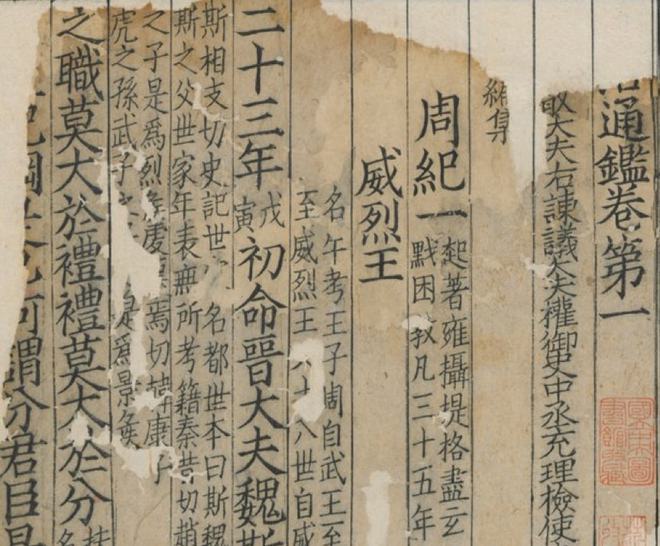 通鑑卷第一
大夫右諫議大夫權御史中丞充理檢使
周紀一起著雍攝提格盡玄
黓困敦凡三十五年
威烈王
名午考王子周自武王至
至威烈王十八世自威
二十三年戊寅初命晉大夫魏斯
斯相支切史記世名都世本曰斯魏
斯之父世家年表無所考籍秦昔切趙
之子是爲烈虔焉切韓康子
虎之孫武子之是爲景矦
之職莫大於禮禮莫大於分
綱何謂分君臣是